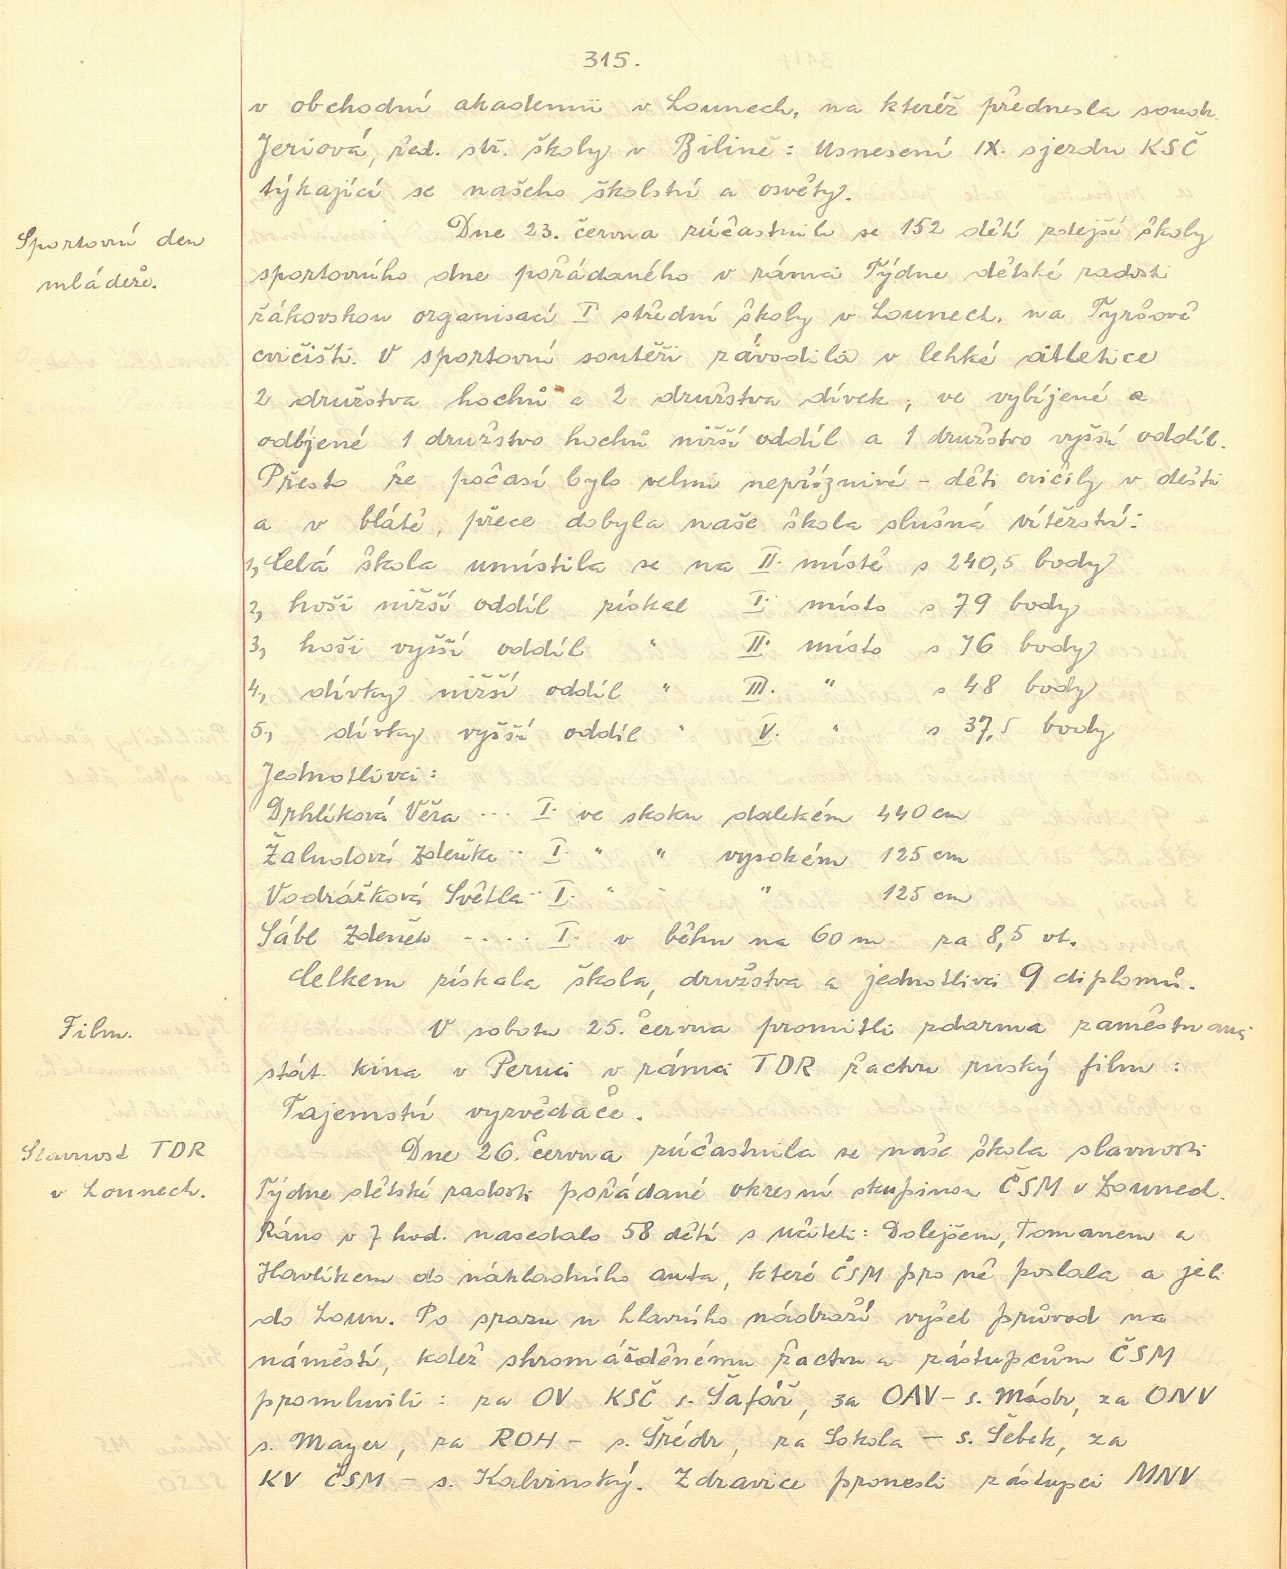 315.
v obchodní akademii v Lounech, na kteréž přednesla soudr.
Jeriová, řed. stř. školy v Bílině: Usnesení IX. sjezdu KSČ
týkající se našeho školství a osvěty.
Sportovní den
mládeže.
Dne 23. června zúčastnilo se 152 dětí zdejší školy
sportovního dne pořádaného v rámci Týdne dětské radosti
žákovskou organisací I střední školy v Lounech, na Tyršově
cvičišti. V sportovní soutěži závodila v lehké atletice
2 družstva hochů a 2 družstva dívek, ve vybíjené a
odbíjené 1 družstvo hochů nižší oddíl a 1 družstvo vyšší oddíl.
Přesto že počasí bylo velmi nepříznivé - děti cvičily v dešti
a v blátě, přece dobyla naše škola slušná vítězství:
1, Celá škola umístila se na II. místě s 240,5 body
2, hoši nižší oddíl získal I. místo s 79 body
3, hoši vyšší oddíl " II. místo s 76 body
4, dívky nižší oddíl " III. " s 48 body
5, dívky vyšší oddíl " V. " s 37,5 body
Jednotlivci:
Drhlíková Věra ... I. ve skoku dalekém 440 cm
Žaludová Zdeňka .. I. " " vysokém 125 cm
Vodrážková Světla .. I. " " " 125 cm
Sábl Zdeněk .... I. v běhu na 60 m za 8,5 vt.
Celkem získala škola, družstva a jednotlivci 9 diplomů.
Film.
V sobotu 25. června promítli zdarma zaměstnanci
stát. kina v Peruci v rámci TDR žactvu ruský film:
Tajemství vyzvědače.
Slavnost TDR
v Lounech.
Dne 26. června zúčastnila se naše škola slavnosti
Týdne dětské radosti pořádané okresní skupinou ČSM v Lounech.
Ráno v 7 hod. nasedalo 58 dětí s učiteli: Dolejšem, Tomanem a
Havlíkem do nákladního auta, které ČSM pro ně poslala a jeli
do Loun. Po srazu u hlavního nádraží vyšel průvod na
náměstí, kdež shromážděnému žactvu a zástupcům ČSM
promluvili: za OV KSČ s. Šafář, za OAV - s. Mádr, za ONV
s. Mayer, za ROH - s. Šrédr, za Sokola - s. Šebek, za
KV ČSM - s. Kalvinský. Zdravice pronesli zástupci MNV